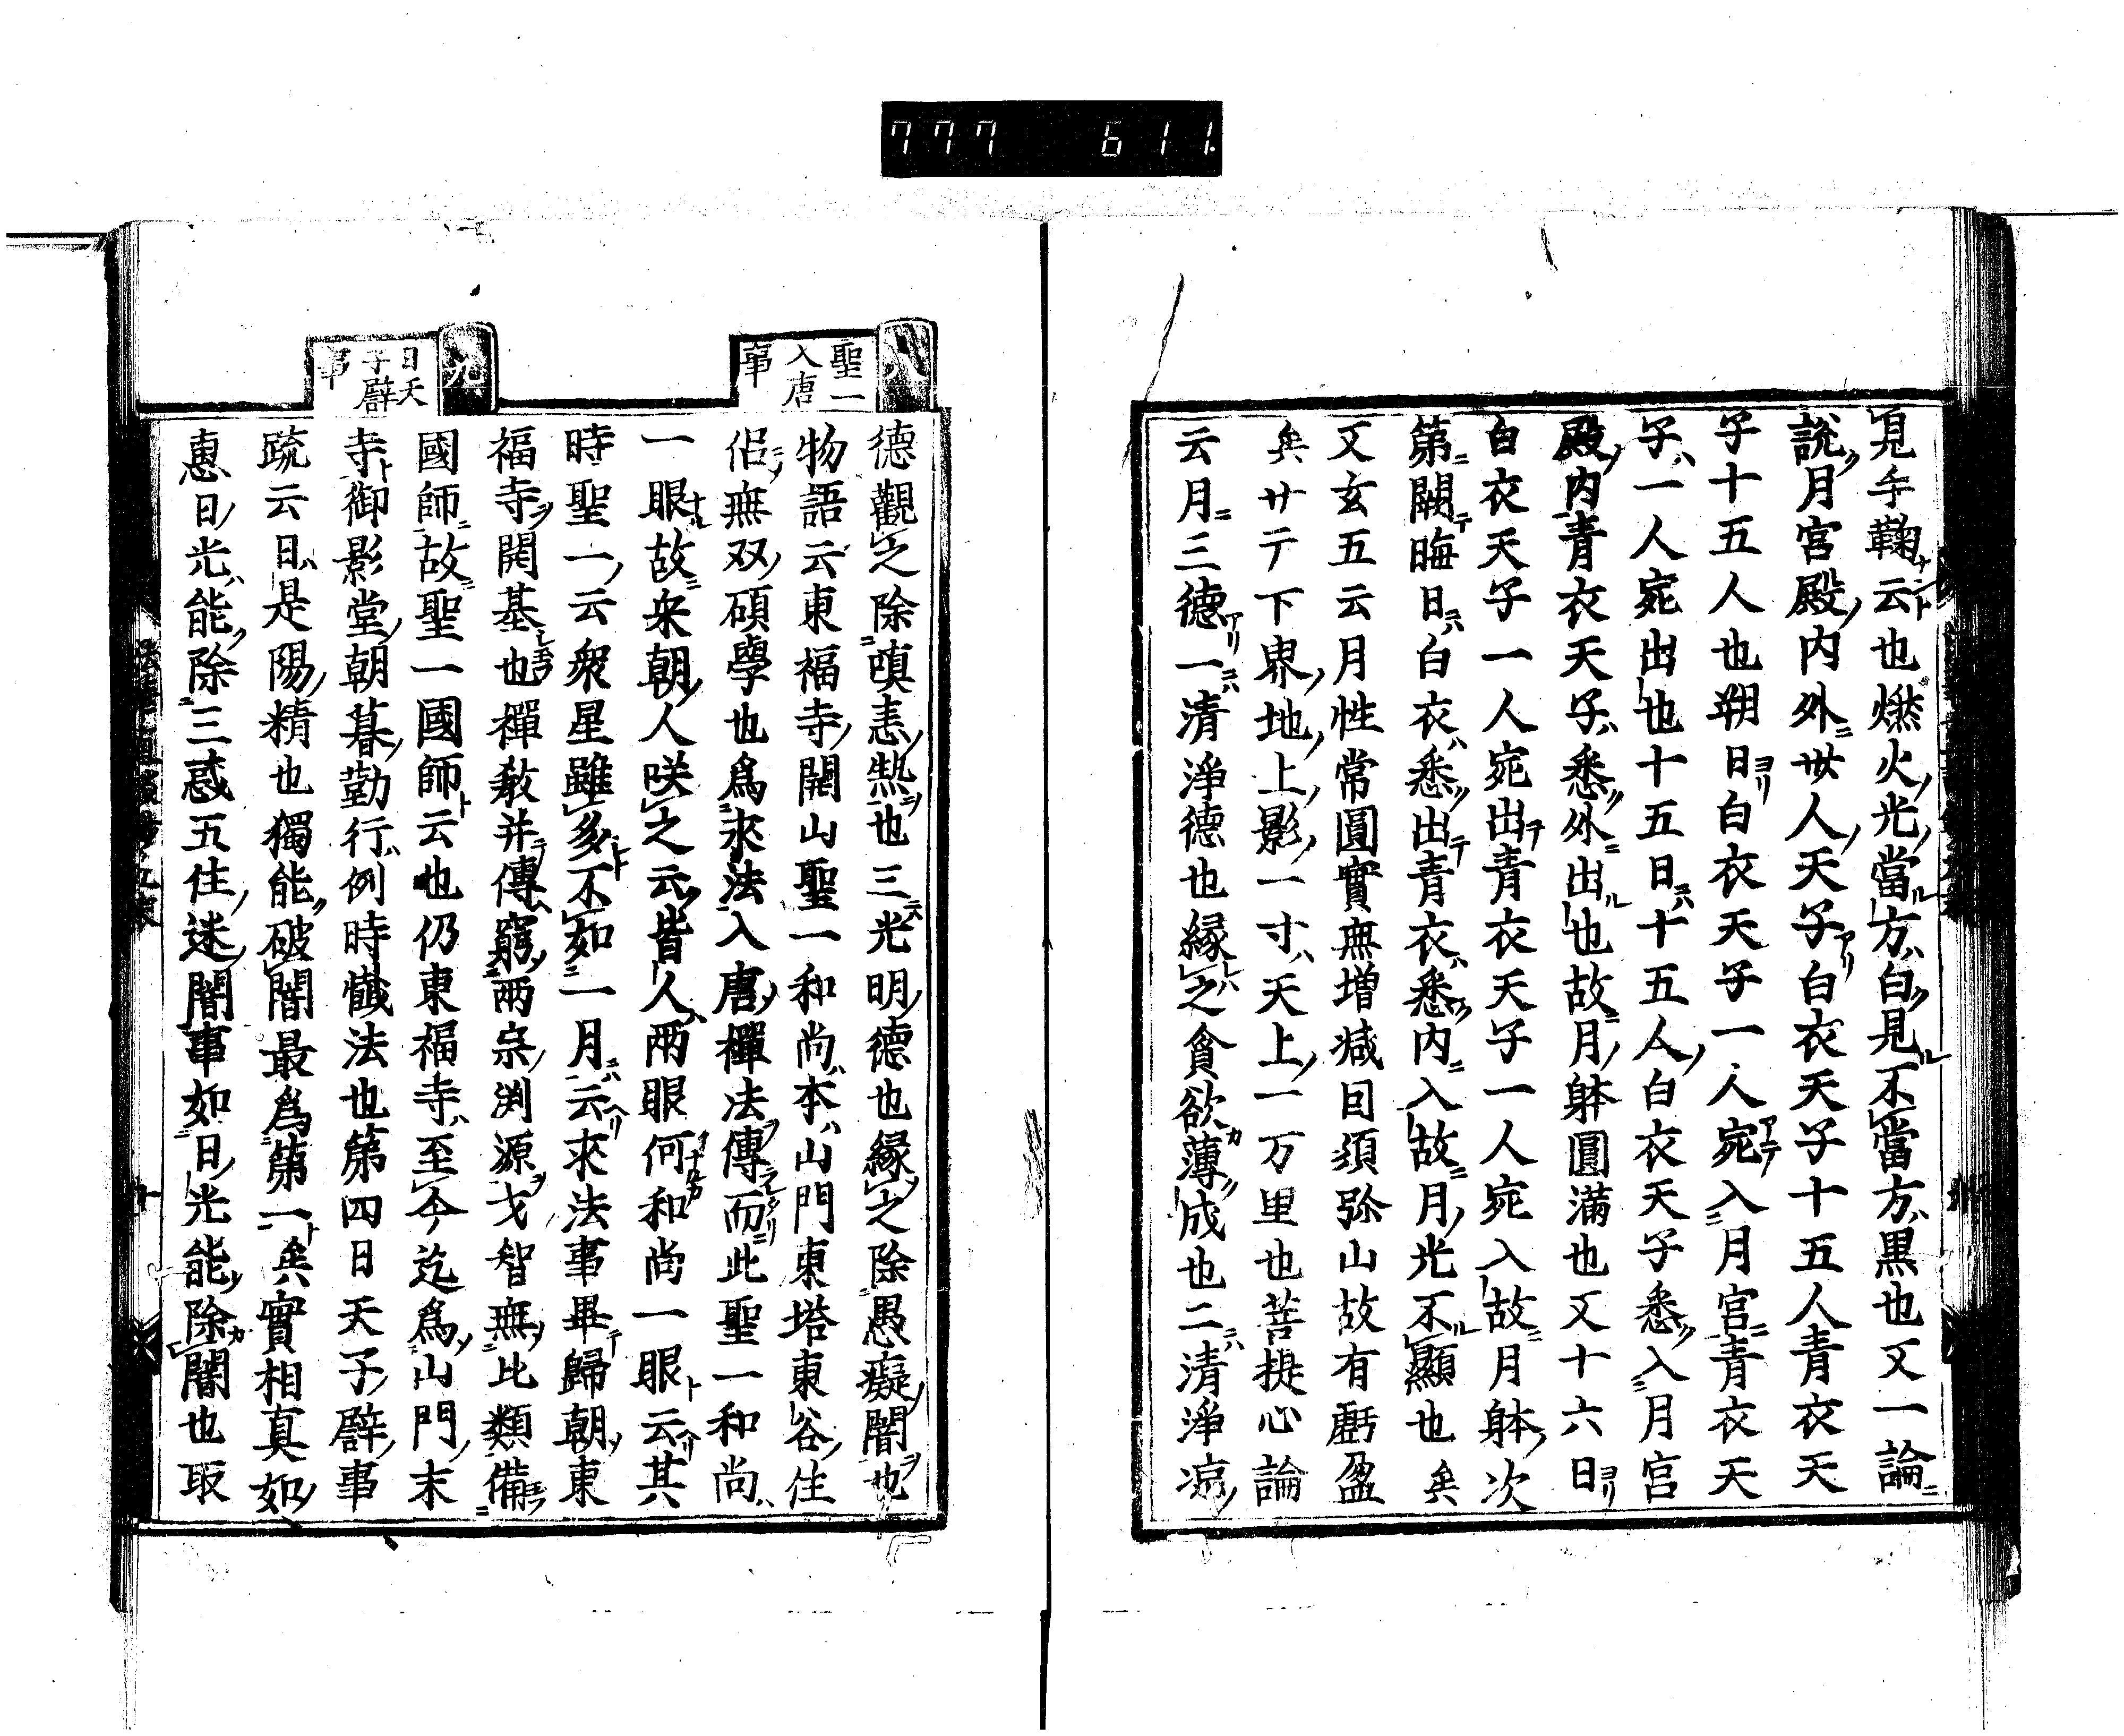 777 611
見手鞠云也燃火光當方白見不當方黒也又一論
說月宮殿内外丗人天子白衣天子十五人青衣天
子十五人也朔日白衣天子一人宛入月宮青衣天
子一人宛出也十五日十五人白衣天子悉入月宮
殿内青衣天子悉外出也故月躰圓滿也又十六日
白衣天子一人宛出青衣天子一人宛入故月躰次
第闕晦日白衣悉出青衣悉内入故月光不顯也矣
又玄五云月性常圓實無増减因須弥山故有虧盈
矣廿テ下界地上影一寸天上一万里也菩提心論
云月三德一清淨德也縁之貪欲薄成也二清淨凉
聖一入唐事
德觀之除嗔恚熱也三光明德也縁之除愚癡闇也
物語云東福寺開山聖一和尚本山門東塔東谷住
侶無双碩學也爲求法入唐禪法傳而此聖一和尚
一眼故来朝人咲之云皆人両眼何和尚一眼云其
時聖一云衆星雖多不如一月云求法事畢歸朝東
福寺開基也禪教并傳窮两宗渕源才智無比類備
國師故聖一國師云也仍東福寺至今迄爲山門末
寺御影堂朝暮勤行例時懺法也第四日天子辟事
九
日天子辟事
疏云日是陽精也獨能破闇最爲第一矣實相真如
惠日光能除三惑五住迷闇事如日光能除闇也取